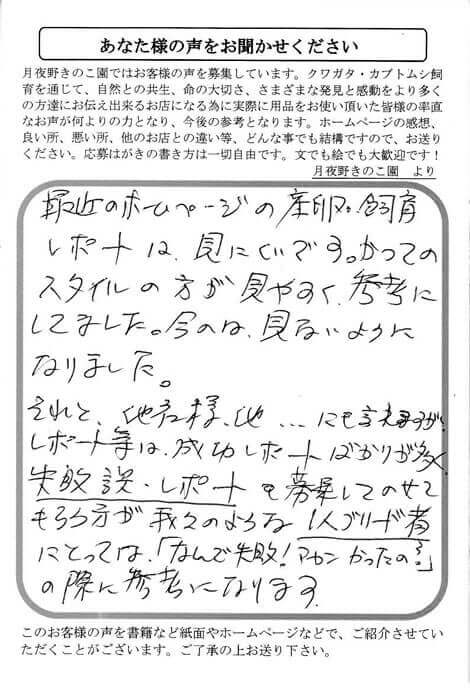 あなた様の声をお聞かせください
月夜野きのこ園ではお客様の声を募集しています。クワガタ・カブトムシ飼
育を通じて、自然との共生、命の大切さ、さまざまな発見と感動をより多く
の方達にお伝え出来るお店になる為に実際に用品をお使い頂いた皆様の率直
なお声が何よりの力となり、今後の参考となります。ホームページの感想、
良い所、悪い所、他のお店との違い等、どんな事でも結構ですので、お送り
ください。応募はがきの書き方は一切自由です。文でも絵でも大歓迎です！
月夜野きのこ園 より
最近のホームページの産卵・飼育
レポートは、見にくいです。かつての
スタイルの方が見やすく、参考に
してました。今のは、見ないように
なりました。
それと、他社様、他…にも言えますが、
レポート等は、成功レポートばかりが多く
失敗談・レポートを募集してのせて
もらう方が我々のような1人ブリード者
にとっては、「なんで失敗！アカンかったの？」
の際に参考になります。
このお客様の声を書籍など紙面やホームページなどで、ご紹介させてい
ただくことがございます。ご了承の上お送り下さい。